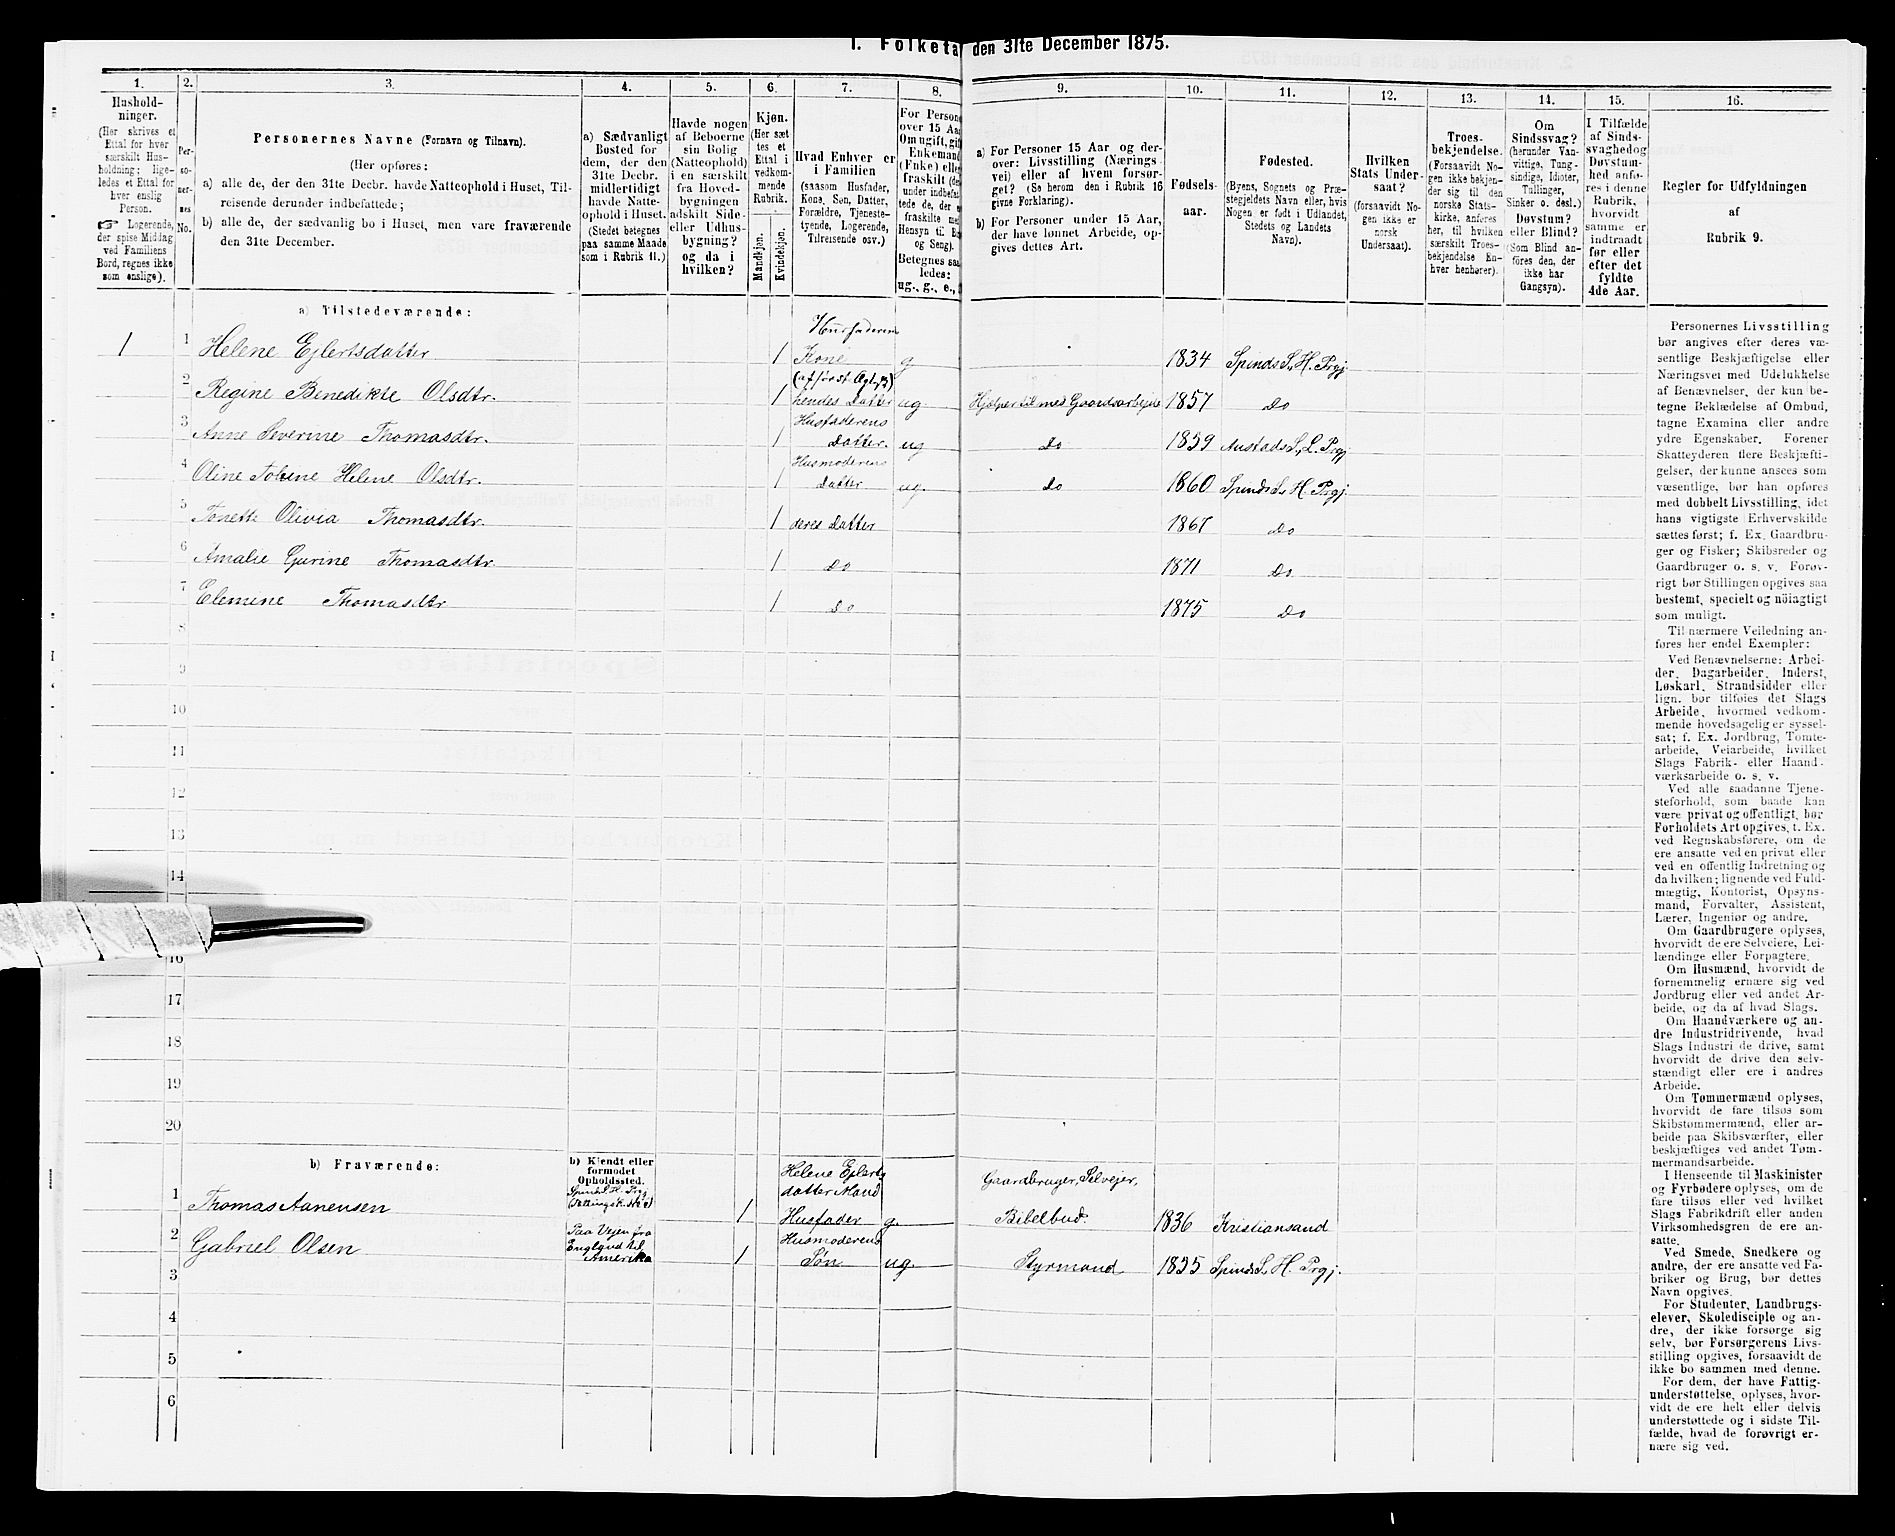 1. Folketa den 31te December 1875.
1.
Hushold-
ninger.
(Her skrives et
Ettal for hver
særskilt Hus-
holdning; lige-
ledes et Ettal for
hver enslig
Person.
☞ Logerende,
der spise Middag
ved Familiens
Bord, regnes ikke
som enslige).
2.
Per-
so-
ner-
nes
No.
3.
Personernes Navne (Fornavn og Tilnavn).
(Her opføres:
a) alle de, der den 31te Decbr. havde Natteophold i Huset, Til-
reisende derunder indbefattede;
b) alle de, der sædvanlig bo i Huset, men vare fraværende
den 31te December.
4.
a) Sædvanligt
Bosted for
dem, der den
31te Decbr.
midlertidigt
havde Natte-
ophold i Huset.
(Stedet betegnes
paa samme Maade
som i Rubrik 11.)
5.
Havde nogen
af Beboerne
sin Bolig
(Natteophold)
i en særskilt
fra Hoved-
bygningen
adskilt Side-
eller Udhus-
bygning?
og da i
hvilken?
6.
Kjøn.
(Her sæt
tes et
Ettal i
vedkom-
mende
Rubrik.
Mandkjøn.
Kvindekjøn.
7.
Hvad Enhver er
i Familien
(saasom Husfader,
Kone, Søn, Datter,
Forældre, Tjeneste-
tyende, Logerende,
Tilreisende osv.)
8.
For Persone
over 15 Aa
Om ugift, gif
Enkemand
(Enke) elle
fraskilt (de
under indbefa
tede de, der e
fraskilte me
Hensyn til Bo
og Seng).
Betegnes saa
ledes:
ug., g., e.,
9.
a) For Personer 15 Aar og der-
over: Livsstilling (Nærings-
vei) eller af hvem forsør-
get? (Se herom den i Rubrik 16
givne Forklaring).
b) For Personer under 15 Aar,
der have lønnet Arbeide, op-
gives dettes Art.
10.
Fødsels-
aar.
11.
Fødested.
(Byens, Sognets og Præ-
stegjeldets Navn eller, hvis
Nogen er født i Udlandet,
Stedets og Landets
Navn).
12.
Hvilken
Stats Under-
saat?
(forsaavidt No-
gen ikke er
norsk
Undersaat).
13.
Troes-
bekjendelse.
(Forsaavidt No-
gen ikke bekjen-
der sig til den
norske Stats-
kirke, anføres
her, til hvilken
særskilt Troes-
bekjendelse En-
hver henhører).
14.
Om
Sindssvag?
(herunder Van-
vittige, Tung-
sindige, Idioter,
Tullinger,
Sinker o. desl.)
Døvstum?
eller Blind?
(Som Blind an-
føres den, der
ikke har
Gangsyn).
15.
I Tilfælde
af Sinds-
svaghed og
Døvstum-
hed anfø-
res i denne
Rubrik,
hvorvidt
samme er
indtraadt
før eller
efter det
fyldte
4de Aar.
16.
Regler for Udfyldningen
af
Rubrik 9.
a) Tilstedeværende:
1 1 Helene Ejlertsdatter. 1 Husfaderens Kone g 1834 Spinds S. H. Prgj
2 Regine Benedikte Olsdtr. 1 (af først Ægtesk) hendes Datter ug. Hjelper til med Gaardsarbejde 1857 Do
3 Anne Severine Thomasdtr. 1 Husfaderens Datter. ug Do 1859 Austads S., L. Prgj
4 Oline Tobine Helene Olsdtr. 1 Husmoderens Datter ug. Do 1860 Spinds S. H. Prgj.
5 Tonette Olivia Thomasdtr. 1 deres Datter 1867 Do
6 Amalie Gurine Thomasdtr 1 Do 1871 Do
7 Elemine Thomasdtr 1 Do 1875 Do
8
9
10
11
12
13
14
16
17
18
19
20
b) Fraværende:
b) Kjendt eller
formodet
Opholdssted.
1 Thomas Aanensen Spinds S. H. Prgj 1 Helene Ejlerts datter Mand Husfader g. Gaardbruger, Selvejer, Bibelbud. 1836 Kristiansand
2 Gabriel Olsen Paa Vejen fra England til Amerika 1 Husmoderens Søn ug. Styrmand 1855 Spinds S. H. Prgj.
3
4
5
6
Personernes Livsstilling
bør angives efter deres væ-
sentlige Beskjæftigelse eller
Næringsvei med Udelukkelse
af Benævnelser, der kun be-
tegne Beklædelse af Ombud,
tagne Examina eller andre
ydre Egenskaber. Forener
Skatteyderen flere Beskjæfti-
gelser, der kunne ansees som
væsentlige, bør han opføres
med dobbelt Livsstilling, idet
hans vigtigste Erhvervskilde
sættes først; f. Ex. Gaardbru-
ger og Fisker; Skibsreder og
Gaardbruger o. s. v. Forøv-
rigt bør Stillingen opgives saa
bestemt, specielt og nöiagtigt
som muligt.
Til nærmere Veiledning an-
føres her endel Exempler:
Ved Benævnelserne: Arbei-
der, Dagarbeider, Inderst,
Løskarl, Strandsidder eller
lign. bør tilføies det Slags
Arbeide, hvormed vedkom-
mende hovedsagelig er syssel-
sat; f. Ex. Jordbrug, Tomte-
arbeide, Veiarbeide, hvilket
Slags Fabrik- eller Haand-
værksarbeide o. s. v.
Ved alle saadanne Tjene-
steforhold, som baade kan
være privat og offentligt, bør
Forholdets Art opgives, t. Ex.
ved Regnskabsførere, om de
ere ansatte ved en privat eller
ved en offentlig Indretning og
da hvilken; lignende ved Fuld-
mægtig, Kontorist, Opsyns-
mand, Forvalter, Assistent,
Lærer, Ingeniør og andre.
Om Gaardbrugere oplyses,
hvorvidt de ere Selveiere, Lei-
lændinge eller Forpagtere.
Om Husmænd, hvorvidt de
fornemmelig ernære sig ved
Jordbrug eller ved andet Ar-
beide, og da af hvad Slags.
Om Haandværkere og an-
dre Industridrivende, hvad
Slags Industri de drive, samt
hvorvidt de drive den selv-
stændigt eller ere i andres
Arbeide.
Om Tømmermænd oplyses,
hvorvidt de fare tilsøs som
Skibstømmermænd, eller ar-
beide paa Skibsværfter, eller
beskjæftiges ved andet Tøm-
mermandsarbeide.
I Henseende til Maskinister
og Fyrbødere oplyses, om de
fare tilsøs eller ved hvilket
Slags Fabrikdrift eller anden
Virksomhedsgren de ere an-
satte.
Ved Smede, Snedkere og
andre, der ere ansatte ved Fa-
briker og Brug, bør dettes
Navn opgives.
For Studenter, Landbrugs-
elever, Skoledisciple og an-
dre, der ikke forsørge sig
selv, bør Forsørgerens Livs-
stilling opgives, forsaavidt de
ikke bo sammen med denne.
For dem, der have Fattig-
understøttelse, oplyses, hvor-
vidt de ere helt eller delvis
understøttede og i sidste Til-
fælde, hvad de forøvrigt er-
nære sig ved.